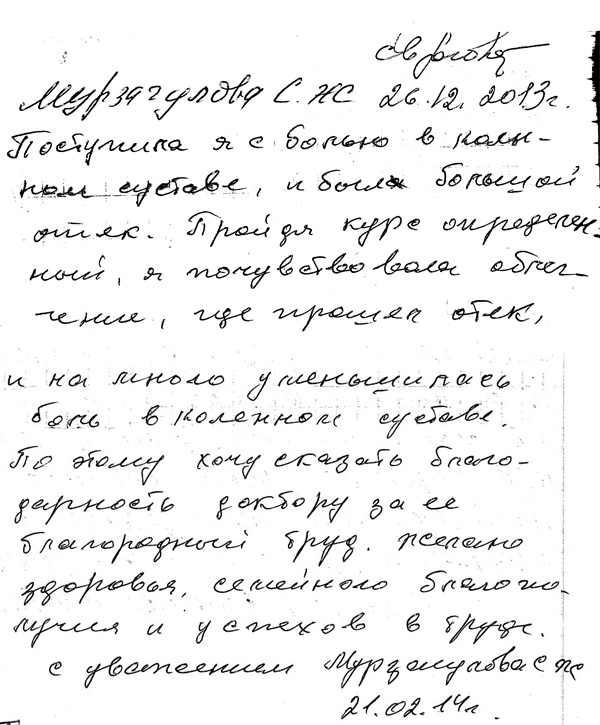 Мурзагулова С. ЖС 26.12. 2013г.
Поступила я с болью в колен-
ном суставе, и была большой
отек. Пройдя курс определен-
ный, я почувствовала облег-
чение, где прошел отек,
и на много уменьшилась
боль в коленном суставе.
По этому хочу сказать благо-
дарность доктору за ее
благородный труд. Желаю
здоровья, семейного благопо-
лучия и успехов в труде.
с уважением Мурзагулова С ЖС
21.02.14г.